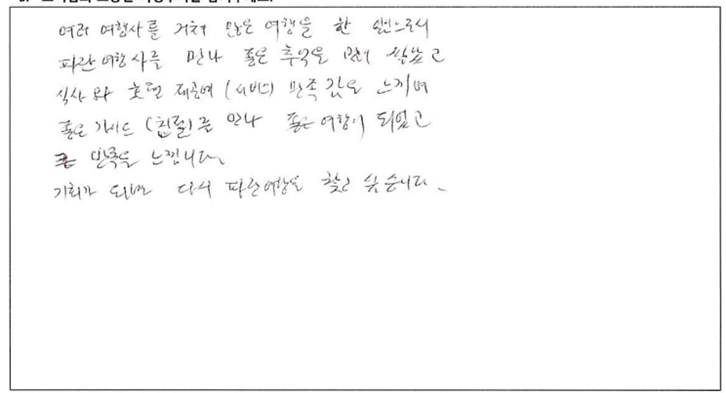 여러 여행사를 거쳐 많은 여행을 한 일인으로서
파란여행사를 만나 좋은 추억을 많이 쌓았고
식사와 호텔 제공에 (서비스) 만족감을 느끼며
좋은 가이드 (친절)를 만나 좋은 여행이 되었고
만족을 느낍니다.
기회가 되면 다시 파란여행을 찾고 싶습니다.